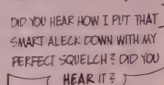 DID YOU HEAR HOW I PUT THAT
SMART ALECK DOWN WITH MY
PERFECT SQUELCH? DID YOU
HEAR IT?